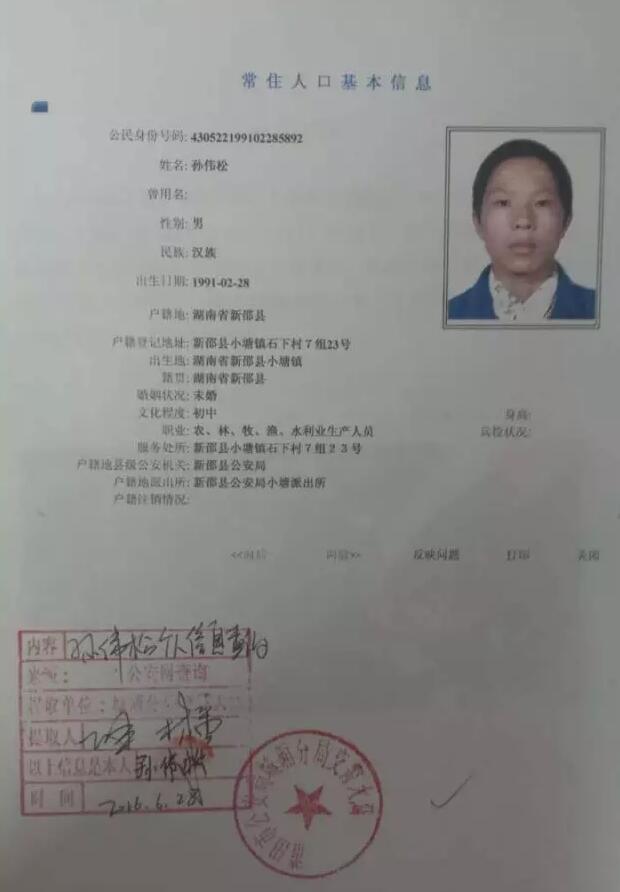 常住人口基本信息
公民身份号码: 430522199102285892
姓名: 孙伟松
曾用名:
性别: 男
民族: 汉族
出生日期: 1991-02-28
户籍地: 湖南省新邵县
户籍登记地址: 新邵县小塘镇石下村7组23号
出生地: 湖南省新邵县小塘镇
籍贯: 湖南省新邵县
婚姻状况: 未婚
文化程度: 初中
身高:
职业: 农、林、牧、渔、水利业生产人员
兵役状况:
服务处所: 新邵县小塘镇石下村7组23号
户籍地县级公安机关: 新邵县公安局
户籍地派出所: 新邵县公安局小塘派出所
户籍注销情况:
反映问题 打印 关闭
内容 孙伟松个人信息查询
公安网查询
提取单位:
提取人
以上信息是本人 孙伟松
时间 2016.6.28